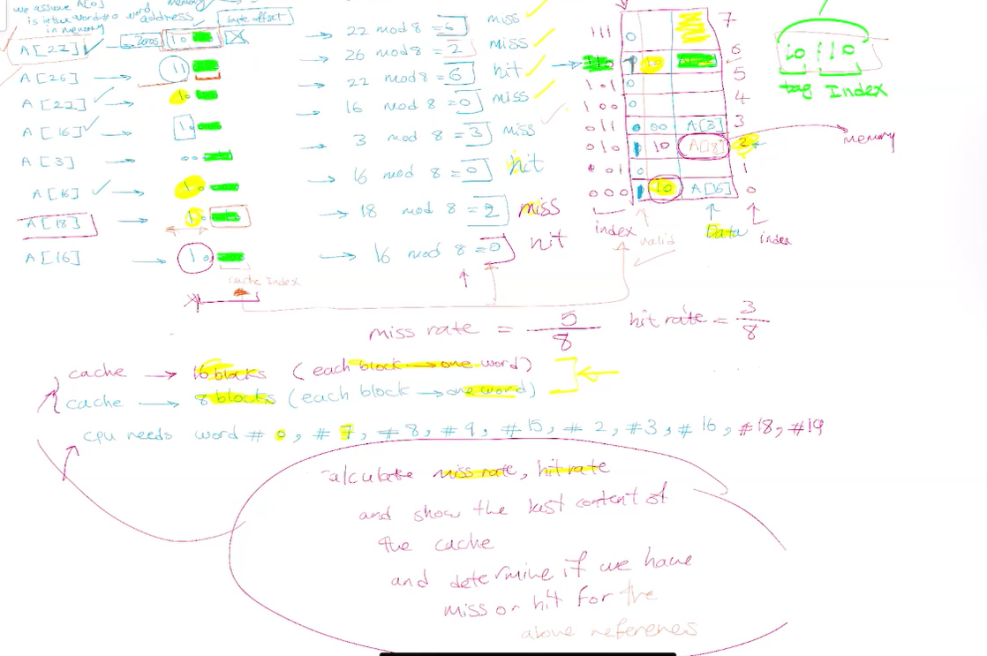 we assume A[0]
is in the word #0 word address
in memory
byte offset
A[22] zeros 10 22 mod 8 = 6 miss
A[26] 11 26 mod 8 = 2 miss
A[22] 10 22 mod 8 = 6 hit
A[16] 10 16 mod 8 = 0 miss
A[3] 00 3 mod 8 = 3 miss
A[16] 10 16 mod 8 = 0 hit
A[18] 10 18 mod 8 = 2 miss
A[16] 10 16 mod 8 = 0 hit
cache Index
111 0 7
110 1 10 6
101 0 5
100 0 4
011 00 A[3] 3
010 1 10 A[18] 2 memory
001 0 1
000 1 10 A[16] 0
index valid Data index
10 110
tag Index
miss rate = 5/8 hit rate = 3/8
cache → 16 blocks (each block → one word)
cache → 8 blocks (each block → one word)
CPU needs word # 0, # 7, # 8, # 9, # 15, # 2, #3, # 16, #18, #19
calculate miss rate, hit rate
and show the last content of
the cache
and determine if we have
miss or hit for the
above references